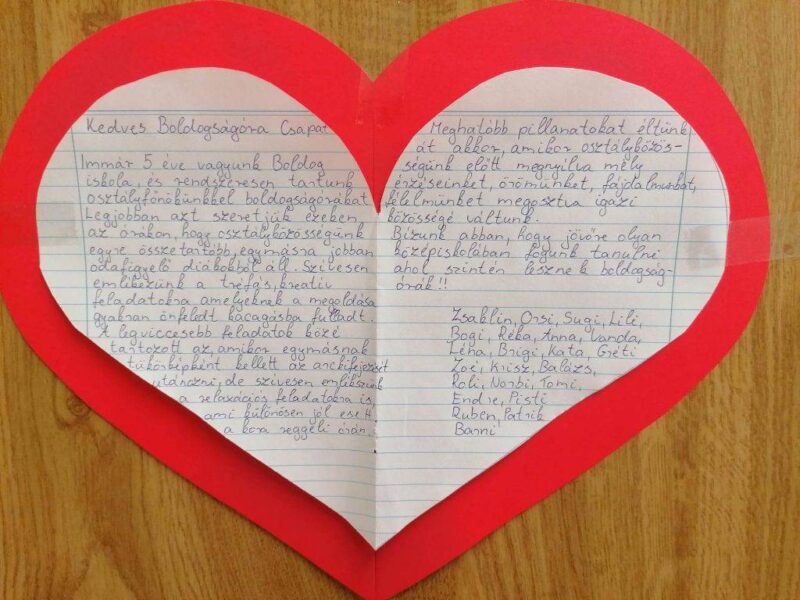 Kedves Boldogságóra Csapat
Immár 5 éve vagyunk Boldog
iskola, és rendszeresen tartunk
osztályfőnökünkkel boldogságórákat.
Legjobban azt szeretjük ezeken
az órákon, hogy osztályközösségünk
egyre összetartóbb, egymásra jobban
odafigyelő diákokból áll. Szívesen
emlékezünk a tréfás, kreatív
feladatokra amelyeknek a megoldása
gyakran önfeledt kacagásba fulladt.
A legviccesebb feladatok közé
tartozott az, amikor egymásnak
tükörképként kellett az arckifejezését
utánozni, de szívesen emlékszünk
a relaxációs feladatokra is,
ami különösen jól esett
a kora reggeli órán.
Meghatóbb pillanatokat éltünk
át akkor, amikor osztályközös-
ségünk előtt megnyílva mély
érzéseinket, örömünket, fájdalmunkat,
félelmünket megosztva igazi
közösséggé váltunk.
Bízunk abban, hogy jövőre olyan
középiskolában fogunk tanulni
ahol szintén lesznek boldogság-
órák!!
Zsaklin, Orsi, Sugi, Lili,
Bogi, Réka, Anna, Vanda,
Léna, Brigi, Kata, Gréti
Zoé, Krisz, Balázs,
Roli, Norbi, Tomi,
Endre, Pisti
Ruben, Patrik
Barni